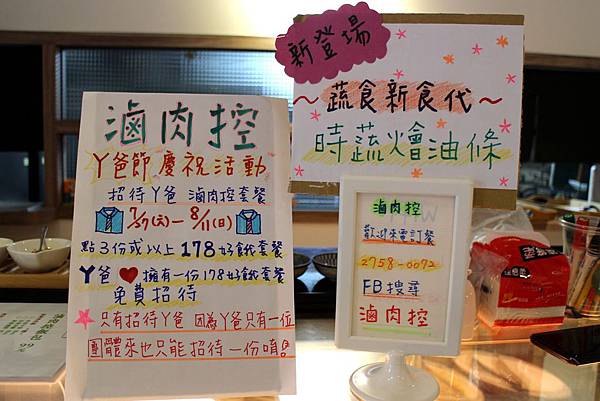 滷肉控
ㄚ爸節慶祝活動
招待ㄚ爸 滷肉控套餐
8/11(日)
點3份或以上178好飯套餐
ㄚ爸❤擁有一份178好飯套餐
免費招待
★只有招待ㄚ爸 因為ㄚ爸只有一位
團體來也只能招待一份唷!
新登場
～蔬食新食代～
時蔬燴油條
滷肉控
歡迎來電訂餐
2758-0072
FB搜尋
滷肉控